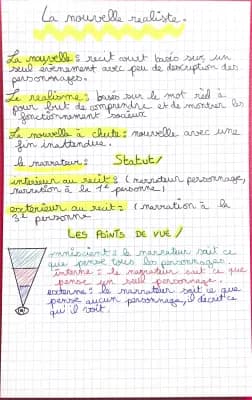 La nouvelle realiste.
La nouvelle : recit court basés sur un
seul évènement avec peu de description des
personnages.
Le realisme : basés sur le mot réel à
pour but de comprendre et de montrer les
fonctionnement sociaux
La nouvelle à chute : nouvelle avec une
fin inattendue.
le narrateur : Statut/
interieur au recit : (narrateur personnage,
narration à la 1e personne)
exterieur au recit : (narration à la
3e personne
LES POINTS DE VUE/
omniscient : le narrateur sait ce
que pense tous les personnages.
interne : le narrateur sait ce que
pense un seul personnage.
externe : le narrateur sait ce que
pense aucun personnage, il décrit ce
qu'il voit.